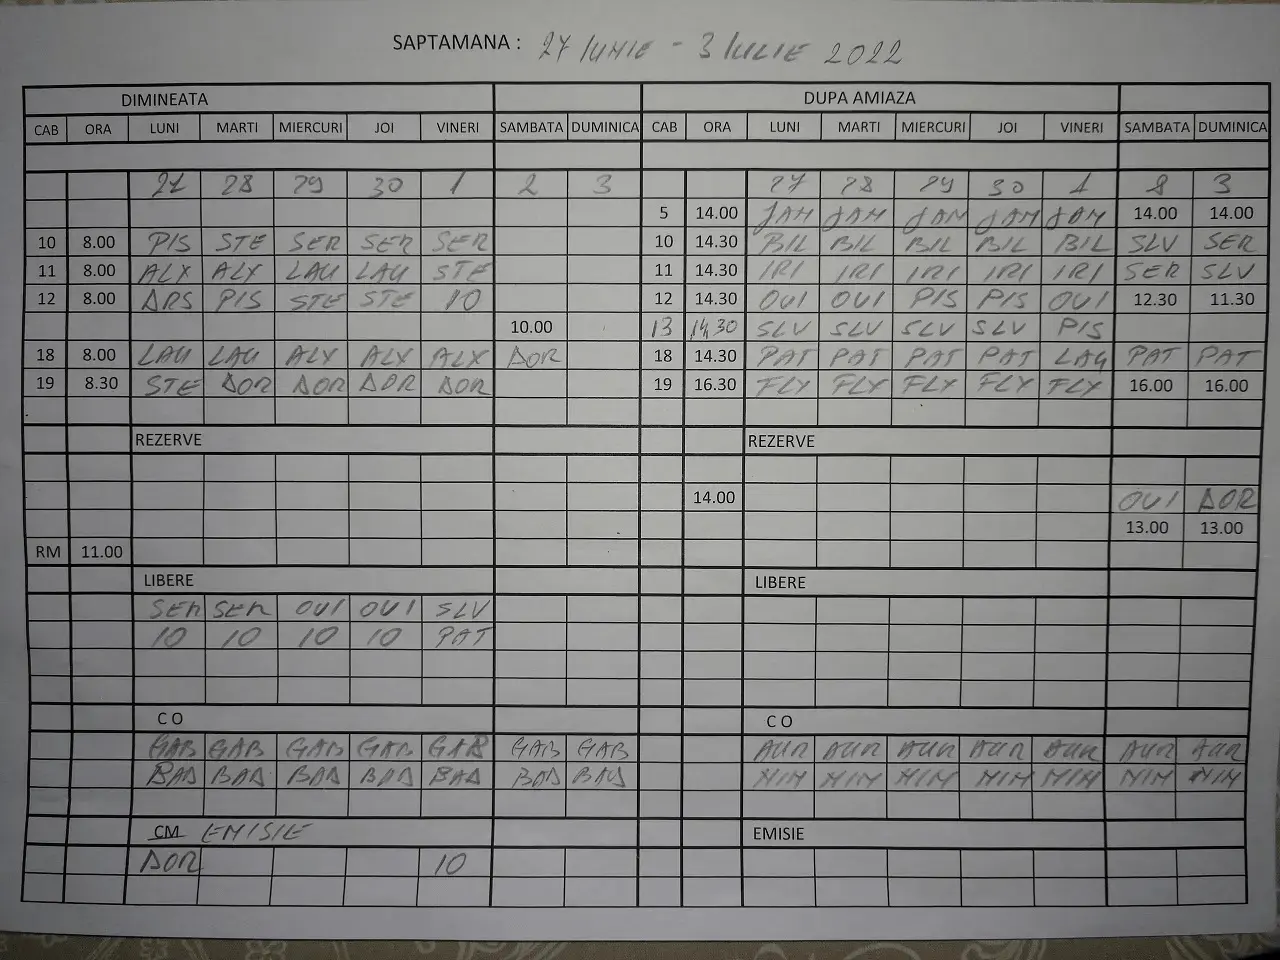 SAPTAMANA : 27 IUNIE - 3 IULIE 2022
DIMINEATA DUPA AMIAZA
CAB ORA LUNI MARTI MIERCURI JOI VINERI SAMBATA DUMINICA CAB ORA LUNI MARTI MIERCURI JOI VINERI SAMBATA DUMINICA
27 28 29 30 1 2 3 27 28 29 30 1 2 3
5 14.00 JAM JAM JAM JAM JAM 14.00 14.00
10 8.00 PIS STE SER SER SER 10 14.30 BIL BIL BIL BIL BIL SLV SER
11 8.00 ALX ALX LAU LAU STE 11 14.30 IRI IRI IRI IRI IRI SER SLV
12 8.00 ARS PIS STE STE 10 12 14.30 OVI OVI PIS PIS OVI 12.30 11.30
10.00 13 14,30 SLV SLV SLV SLV PIS
18 8.00 LAU LAU ALX ALX ALX DOR 18 14.30 PAT PAT PAT PAT LAU PAT PAT
19 8.30 STE DOR DOR DOR DOR 19 16.30 FLX FLX FLX FLX FLX 16.00 16.00
REZERVE REZERVE
14.00 OVI DOR
13.00 13.00
RM 11.00
LIBERE LIBERE
SER SER OVI OVI SLV
10 10 10 10 PAT
C O C O
GAB GAB GAB GAB GAB GAB GAB AUR AUR AUR AUR AUR AUR AUR
BAD BAD BAD BAD BAD BAD BAD MIM MIM MIM MIM MIM MIM MIM
CM EMISIE EMISIE
DOR 10